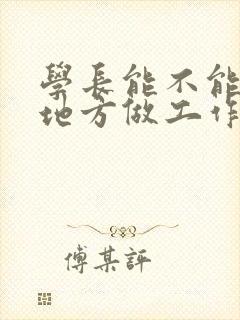 學長能不能
地方做工作
傅某評